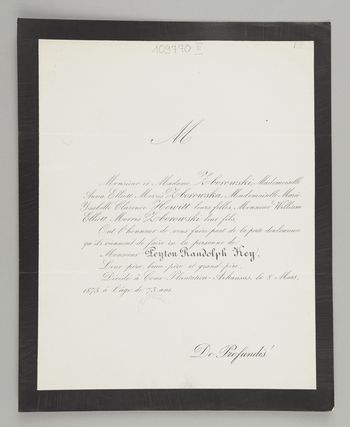 109770 II
M
Monsieur et Madame Zborowski, Mademoiselle
Anna Elliott Morris Zborowska, Mademoiselle Marie
Ysabelle Clarence Hewitt leurs filles, Monsieur William
Elliott Morris Zborowski leur fils,
Ont l'honneur de vous faire part de la perte douloureuse
qu'ils viennent de faire en la personne de
Monsieur Peyton Randolph Key,
Leur père, beau-père et grand-père,
Décédé à Plantation, Arkansas, le 8 Mars,
1875 à l'âge de 73 ans.
De Profundis!